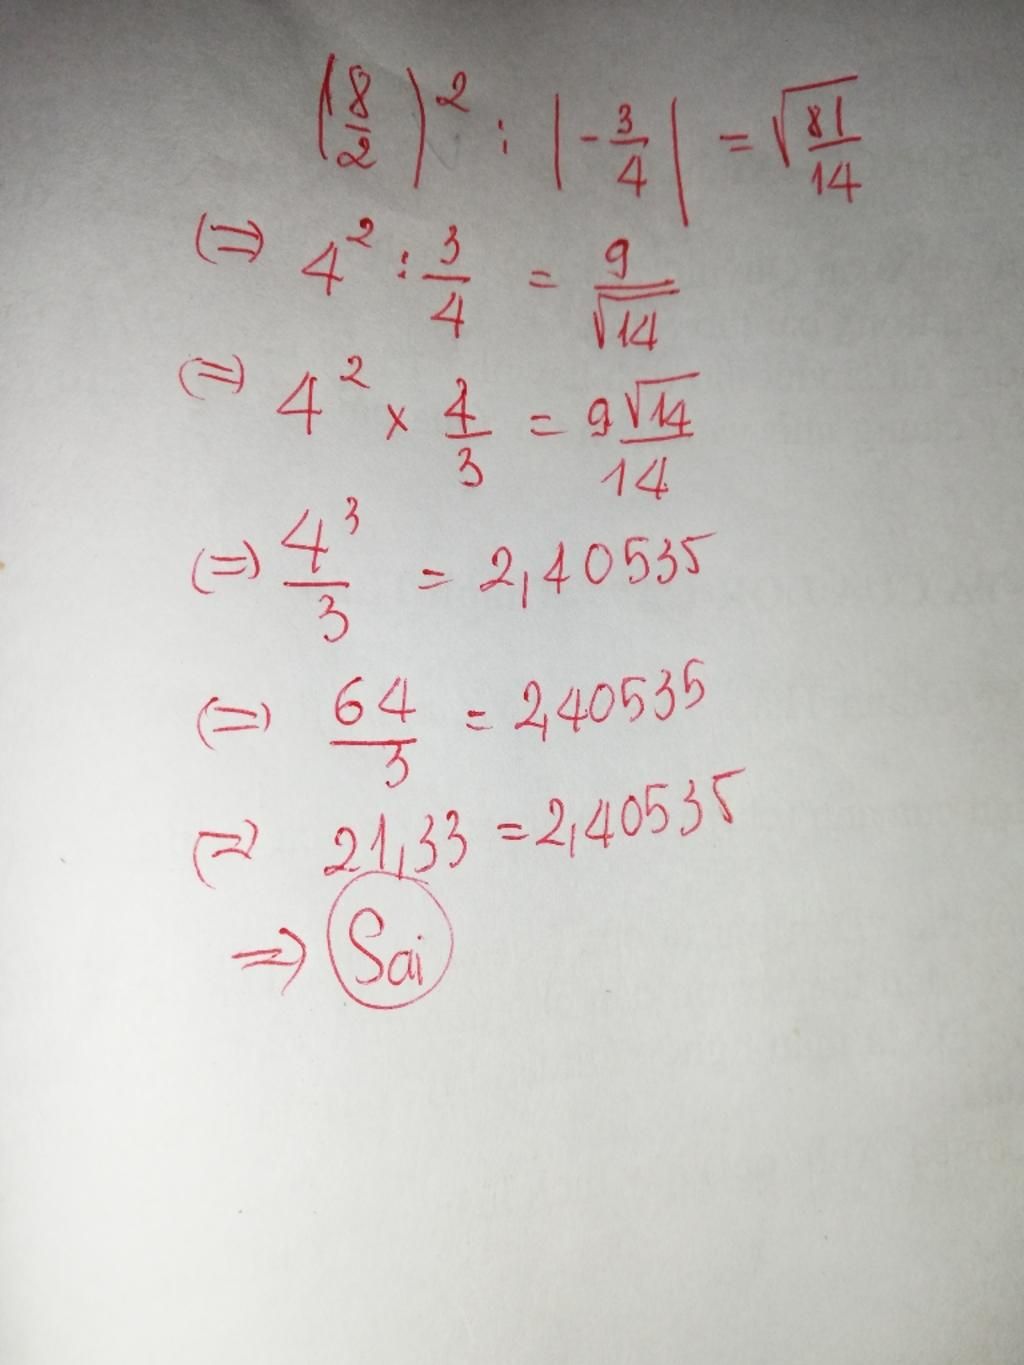 (8/2)² : |-3/4| = √81/14
(=) 4² : 3/4 = 9/√14
(=) 4² × 4/3 = 9√14/14
(=) 4³/3 = 2,40535
(=) 64/3 = 2,40535
(=) 21,33 = 2,40535
=> Sai